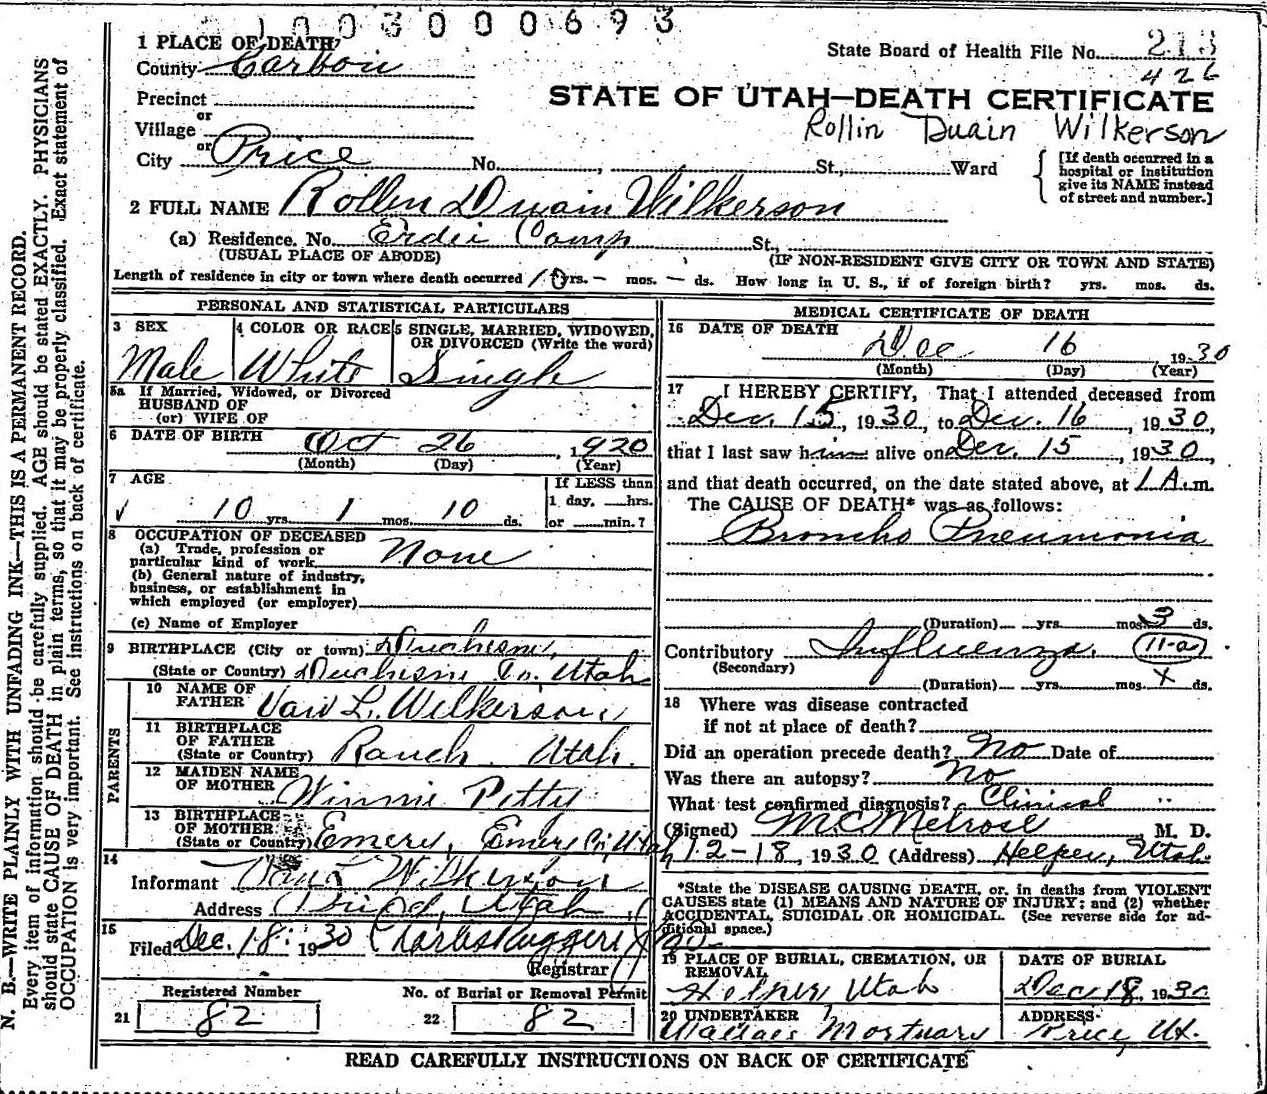 1003000693
1 PLACE OF DEATH
County Carbon
State Board of Health File No. 213
426
Precinct
or
Village
or
City Price No. , St., Ward
STATE OF UTAH—DEATH CERTIFICATE
Rollin Duain Wilkerson
[If death occurred in a
hospital or institution
give its NAME instead
of street and number.]
2 FULL NAME Rollin Duain Wilkerson
(a) Residence. No. Camp St.,
(USUAL PLACE OF ABODE) (IF NON-RESIDENT GIVE CITY OR TOWN AND STATE)
Length of residence in city or town where death occurred 10 yrs. — mos. — ds. How long in U. S., if of foreign birth? yrs. mos. ds.
PERSONAL AND STATISTICAL PARTICULARS
3 SEX
Male
4 COLOR OR RACE
White
5 SINGLE, MARRIED, WIDOWED,
OR DIVORCED (Write the word)
Single
5a If Married, Widowed, or Divorced
HUSBAND OF
(or) WIFE OF
6 DATE OF BIRTH Oct 26, 1920
(Month) (Day) (Year)
7 AGE
10 yrs. 1 mos. 10 ds.
If LESS than
1 day, hrs.
or min.?
8 OCCUPATION OF DECEASED
(a) Trade, profession or
particular kind of work None
(b) General nature of industry,
business, or establishment in
which employed (or employer)
(c) Name of Employer
9 BIRTHPLACE (City or town) Duchesne,
(State or Country) Duchesne Co. Utah
PARENTS
10 NAME OF
FATHER L. Wilkerson
11 BIRTHPLACE
OF FATHER
(State or Country) Ranch Utah.
12 MAIDEN NAME
OF MOTHER Winnie Petty
13 BIRTHPLACE
OF MOTHER
(State or Country) Emery, Emery Co. Utah
14
Informant Wilkerson
Address Utah
15
Filed Dec. 18. 1930 Charles Ruggeri
Registrar
Registered Number
21 82
No. of Burial or Removal Permit
22 82
MEDICAL CERTIFICATE OF DEATH
16 DATE OF DEATH
Dec 16, 1930
(Month) (Day) (Year)
17 I HEREBY CERTIFY, That I attended deceased from
Dec. 15, 1930, to Dec. 16, 1930,
that I last saw him alive on Dec. 15, 1930,
and that death occurred, on the date stated above, at 1 A.m.
The CAUSE OF DEATH* was as follows:
Broncho Pneumonia
(Duration) yrs. mos. 3 ds.
Contributory Influenza. 11-a
(Secondary)
(Duration) yrs. mos. ds.
18 Where was disease contracted
if not at place of death?
Did an operation precede death? No Date of
Was there an autopsy? No
What test confirmed diagnosis? Clinical
(Signed) M.C. Melrose M. D.
12-18, 1930 (Address) Helper, Utah
*State the DISEASE CAUSING DEATH, or, in deaths from VIOLENT
CAUSES state (1) MEANS AND NATURE OF INJURY; and (2) whether
ACCIDENTAL, SUICIDAL OR HOMICIDAL. (See reverse side for ad-
ditional space.)
19 PLACE OF BURIAL, CREMATION, OR
REMOVAL
Helper Utah
DATE OF BURIAL
Dec 18, 1930
20 UNDERTAKER
Wallace Mortuary
ADDRESS
Price, Ut.
READ CAREFULLY INSTRUCTIONS ON BACK OF CERTIFICATE
N. B.—WRITE PLAINLY WITH UNFADING INK—THIS IS A PERMANENT RECORD.
Every item of information should be carefully supplied. AGE should be stated EXACTLY. PHYSICIANS
should state CAUSE OF DEATH in plain terms, so that it may be properly classified. Exact statement of
OCCUPATION is very important. See instructions on back of certificate.